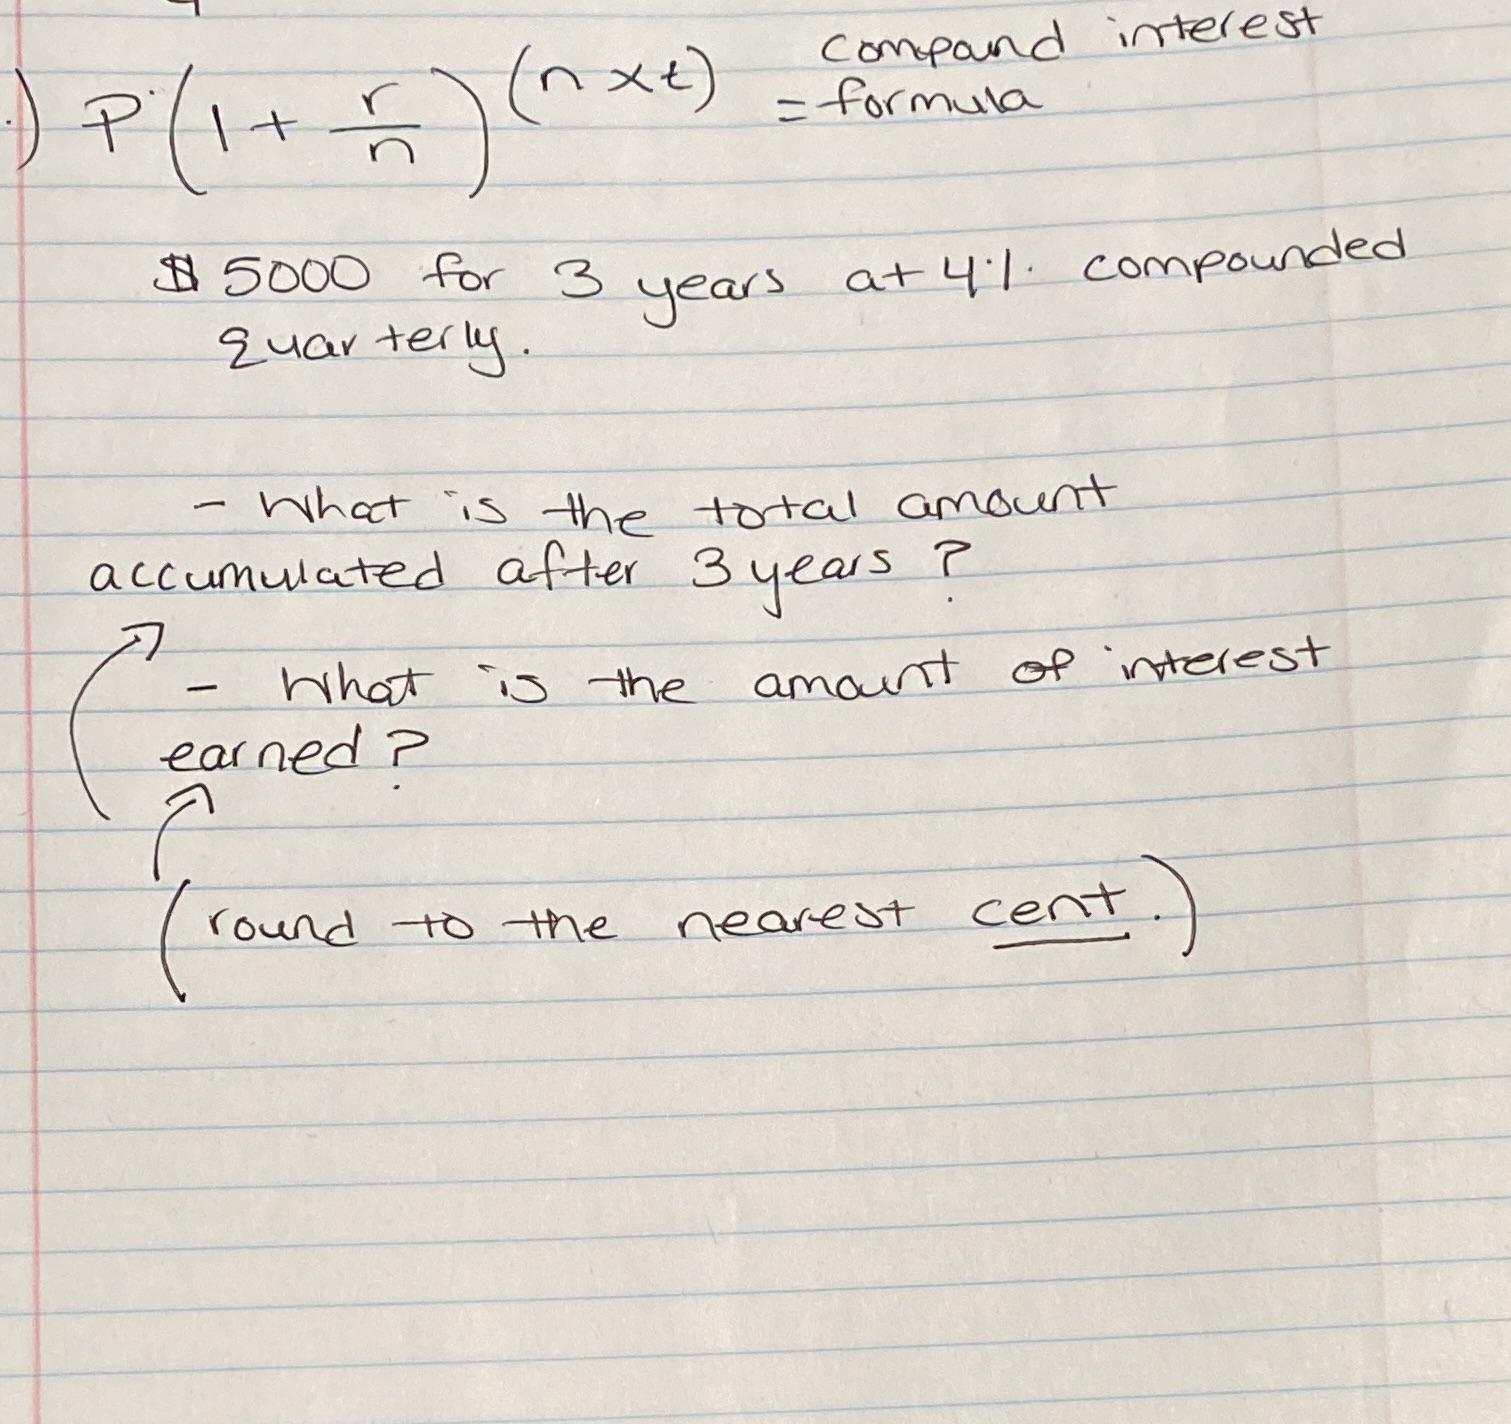 .) P(1 + r/n)^(n x t) = compound interest formula
$ 5000 for 3 years at 4% compounded
quarterly.
- What is the total amount
accumulated after 3 years?
- What is the amount of interest
earned?
(round to the nearest cent.)